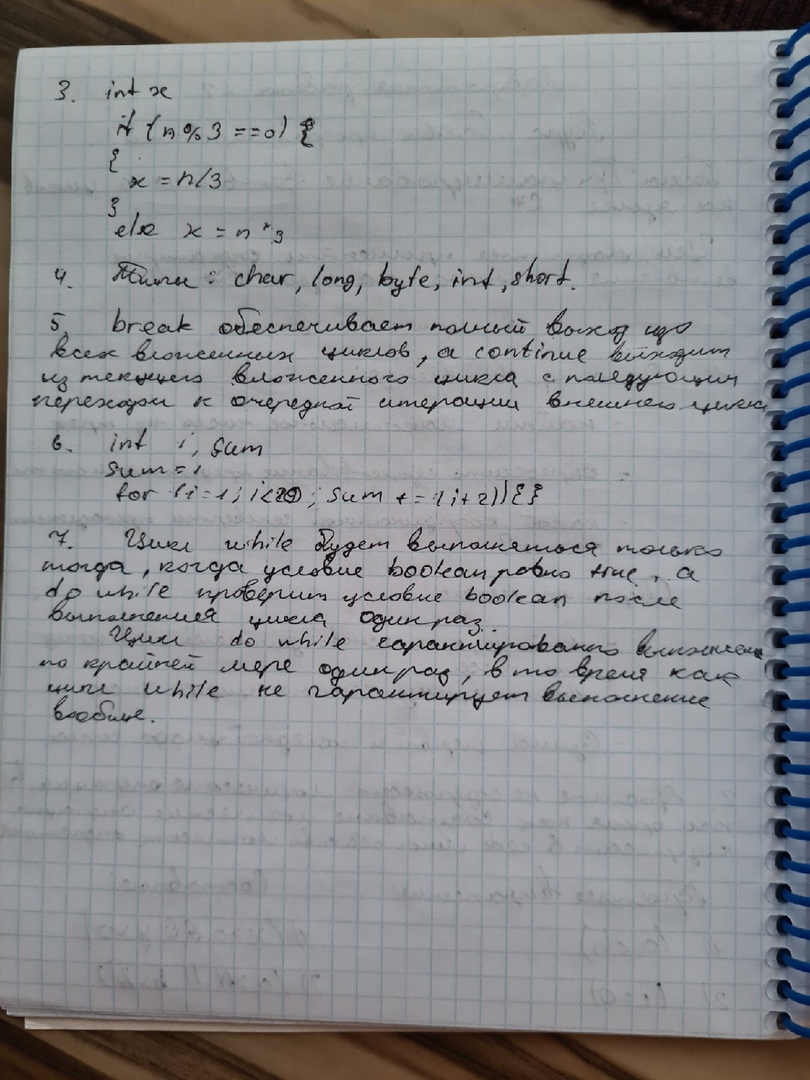 3. int x
if (n%3 ==0) {
{
x = n/3
}
else x = n*3
4. Типы: char, long, byte, int, short.
5. break обеспечивает полный выход из
всех вложенных циклов, а continue выходит
из текущего вложенного цикла с последующим
переходом к очередной итерации внешнего цикла
6. int i, sum
sum = 1
for (i=1; i<20; sum += (i+2)){}
7. Цикл while будет выполняться только
тогда, когда условие boolean равно true, а
do while проверит условие boolean после
выполнения цикла один раз.
Цикл do while гарантированого выполнения
по крайней мере один раз, в то время как
цикл while не гарантирует выполнение
вообще.